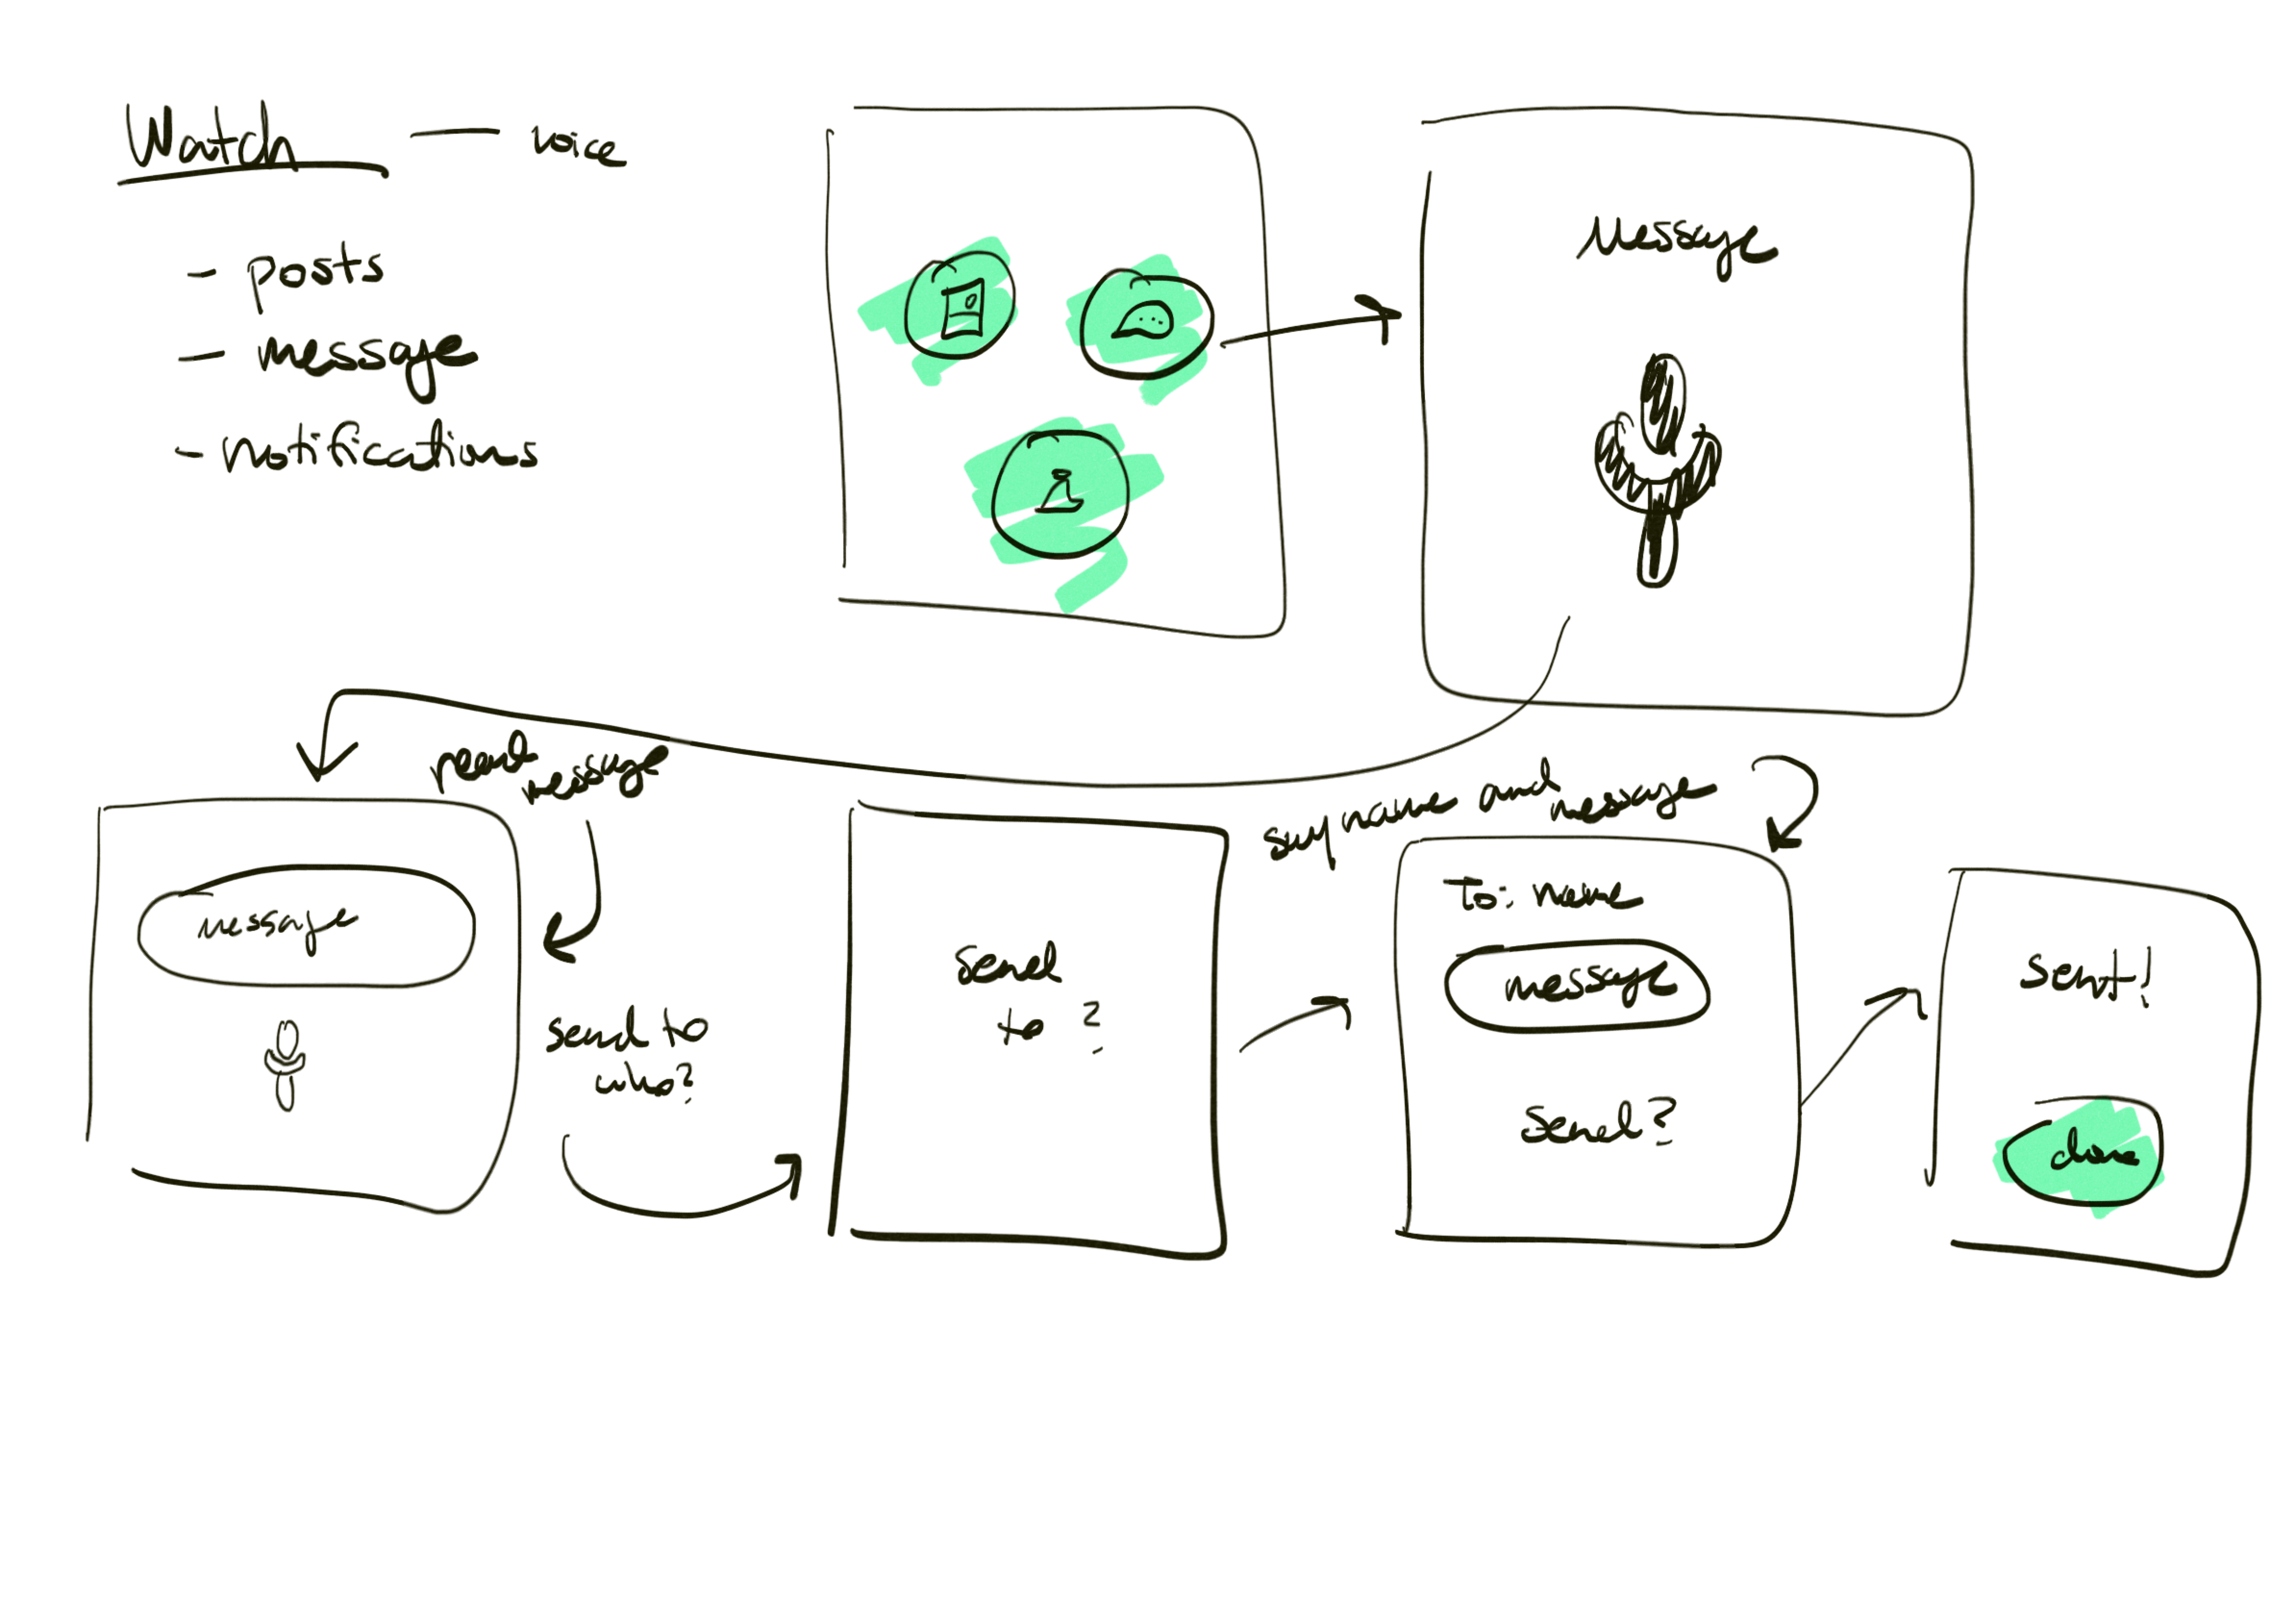 Watch — voice
- posts
- message
- notifications
Message
read
message
message
send to
who?
send
to ?
say name and
message
to: name
message
send?
sent!
done